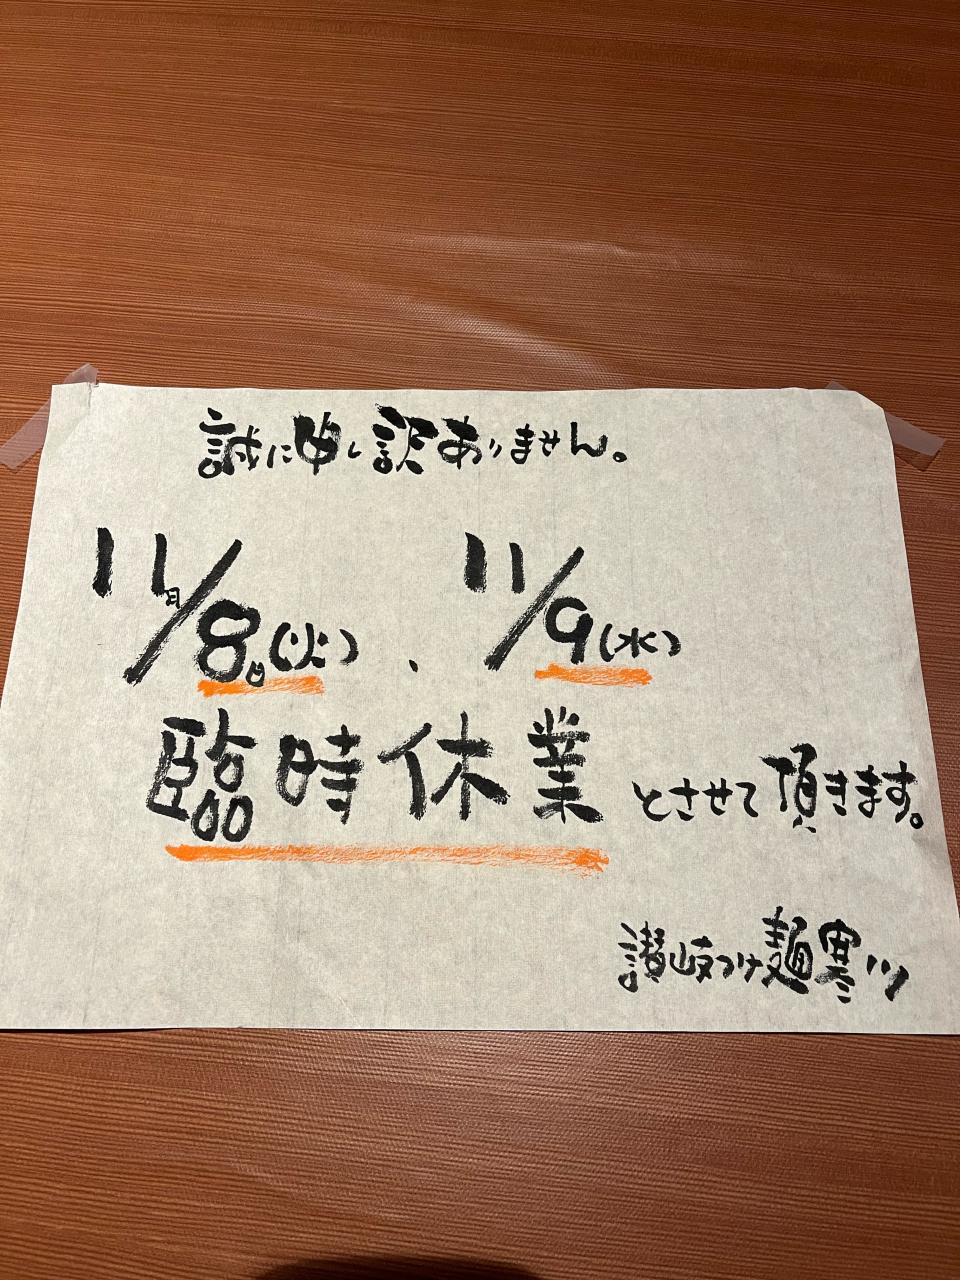 誠に申し訳ありません。
11月/8日(火)、11/9(水)
臨時休業とさせて頂きます。
讃岐つけ麺寒川